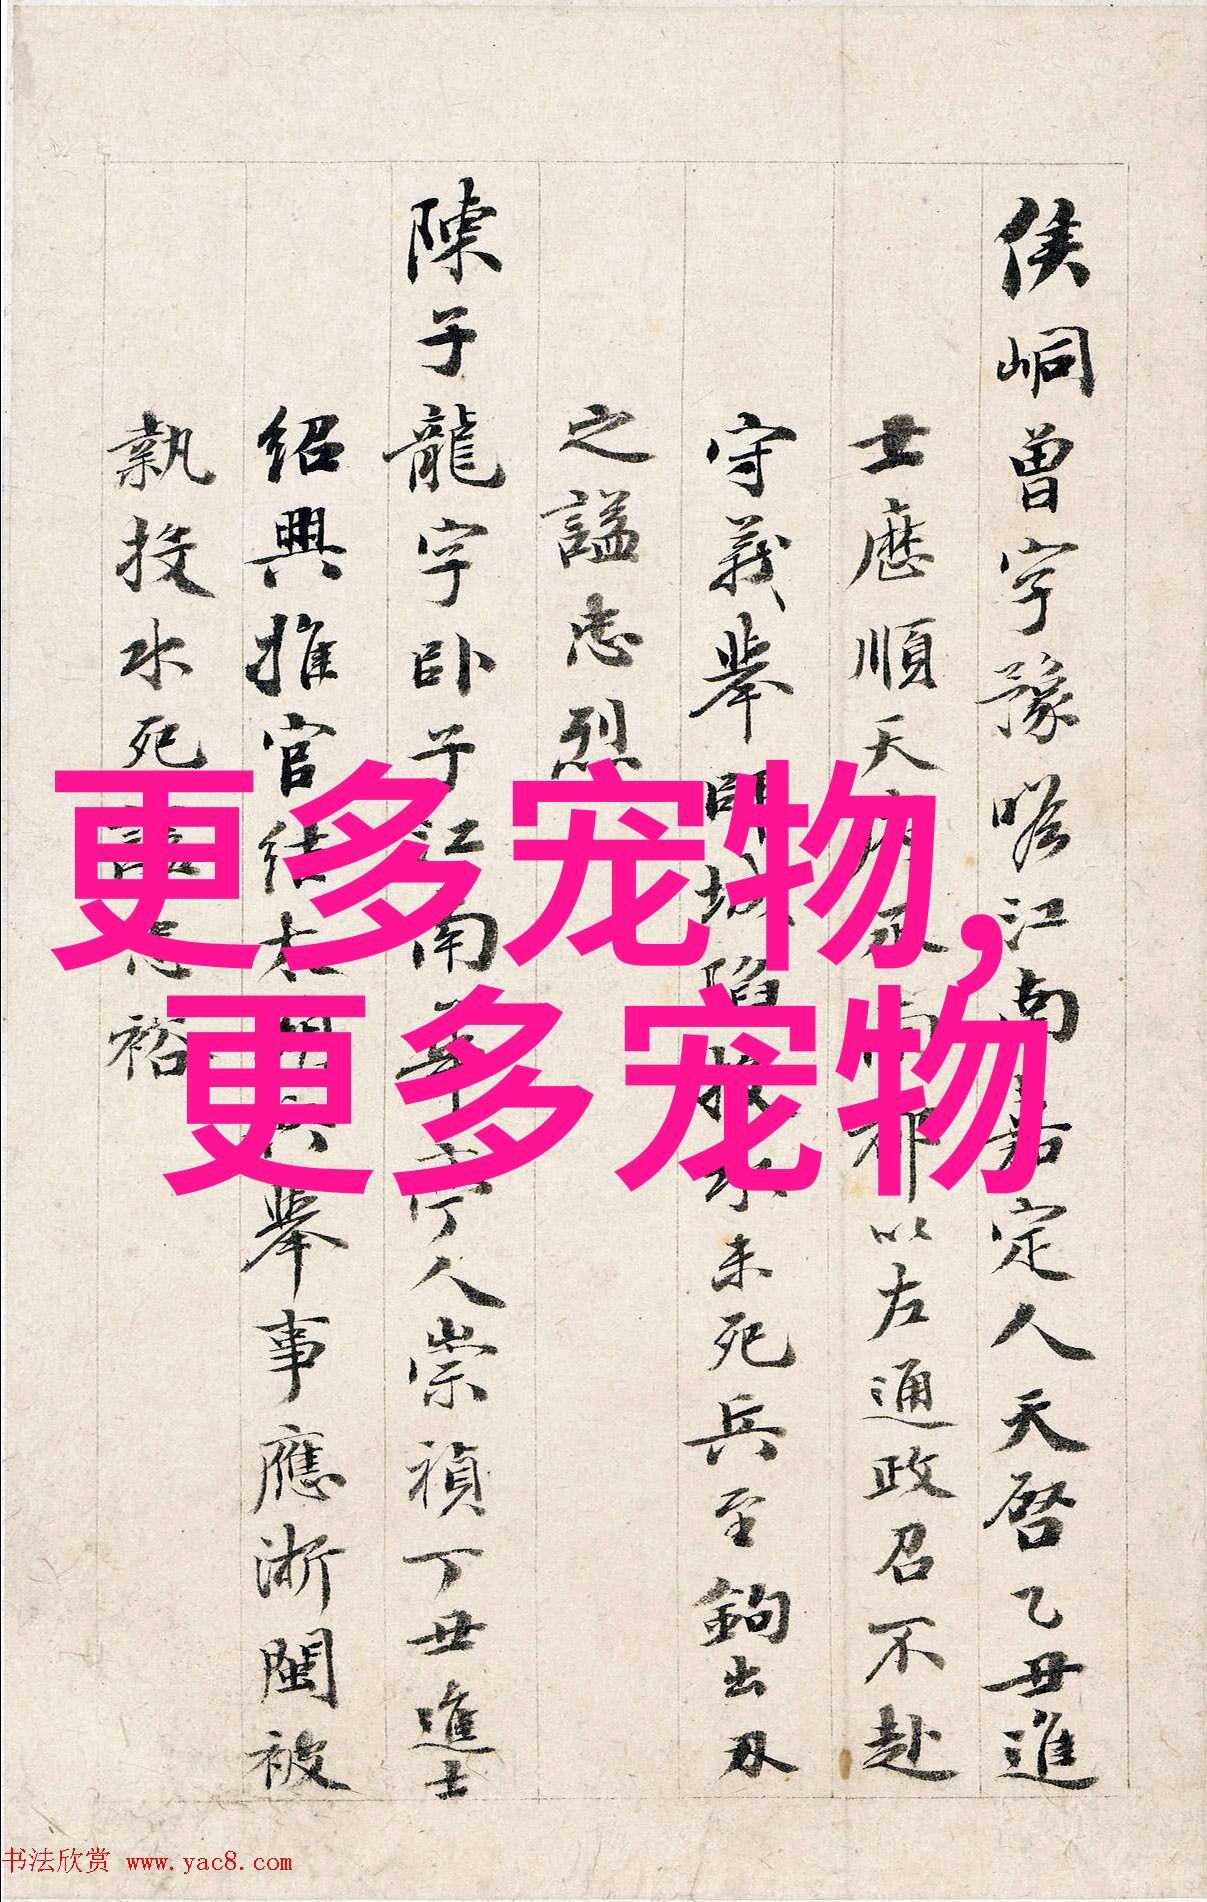 侯峒曾字豫瞻江南嘉定人天啓乙丑進
士歷順天以左通政召不赴
守義舉師城陷投水未死兵至鉤出刃
之謚忠烈
陳子龍字卧子江南華亭人崇禎丁丑進士
紹興推官結太舉事應浙閩被
執投水死裕
更多宠物,
更多宠物
书法欣赏 www.yac8.com